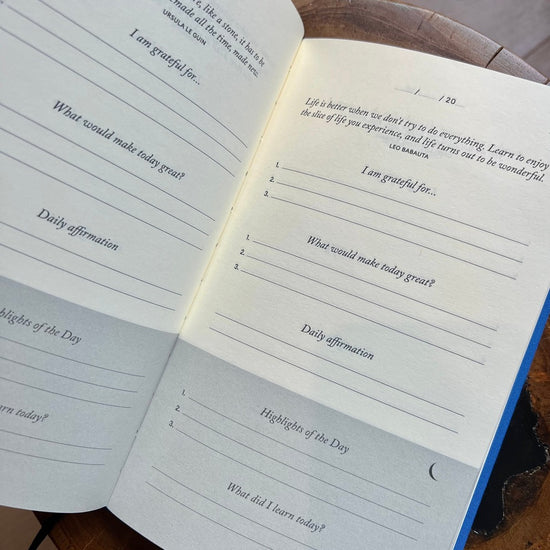 like a stone, it has to be
made all the time, made new.
URSULA LE GUIN
I am grateful for...
What would make today great?
Daily affirmation
Highlights of the Day
learn today?
/ / 20
Life is better when we don't try to do everything. Learn to enjoy
the slice of life you experience, and life turns out to be wonderful.
LEO BABAUTA
I am grateful for...
1.
2.
3.
What would make today great?
1.
2.
3.
Daily affirmation
Highlights of the Day
1.
2.
3.
What did I learn today?